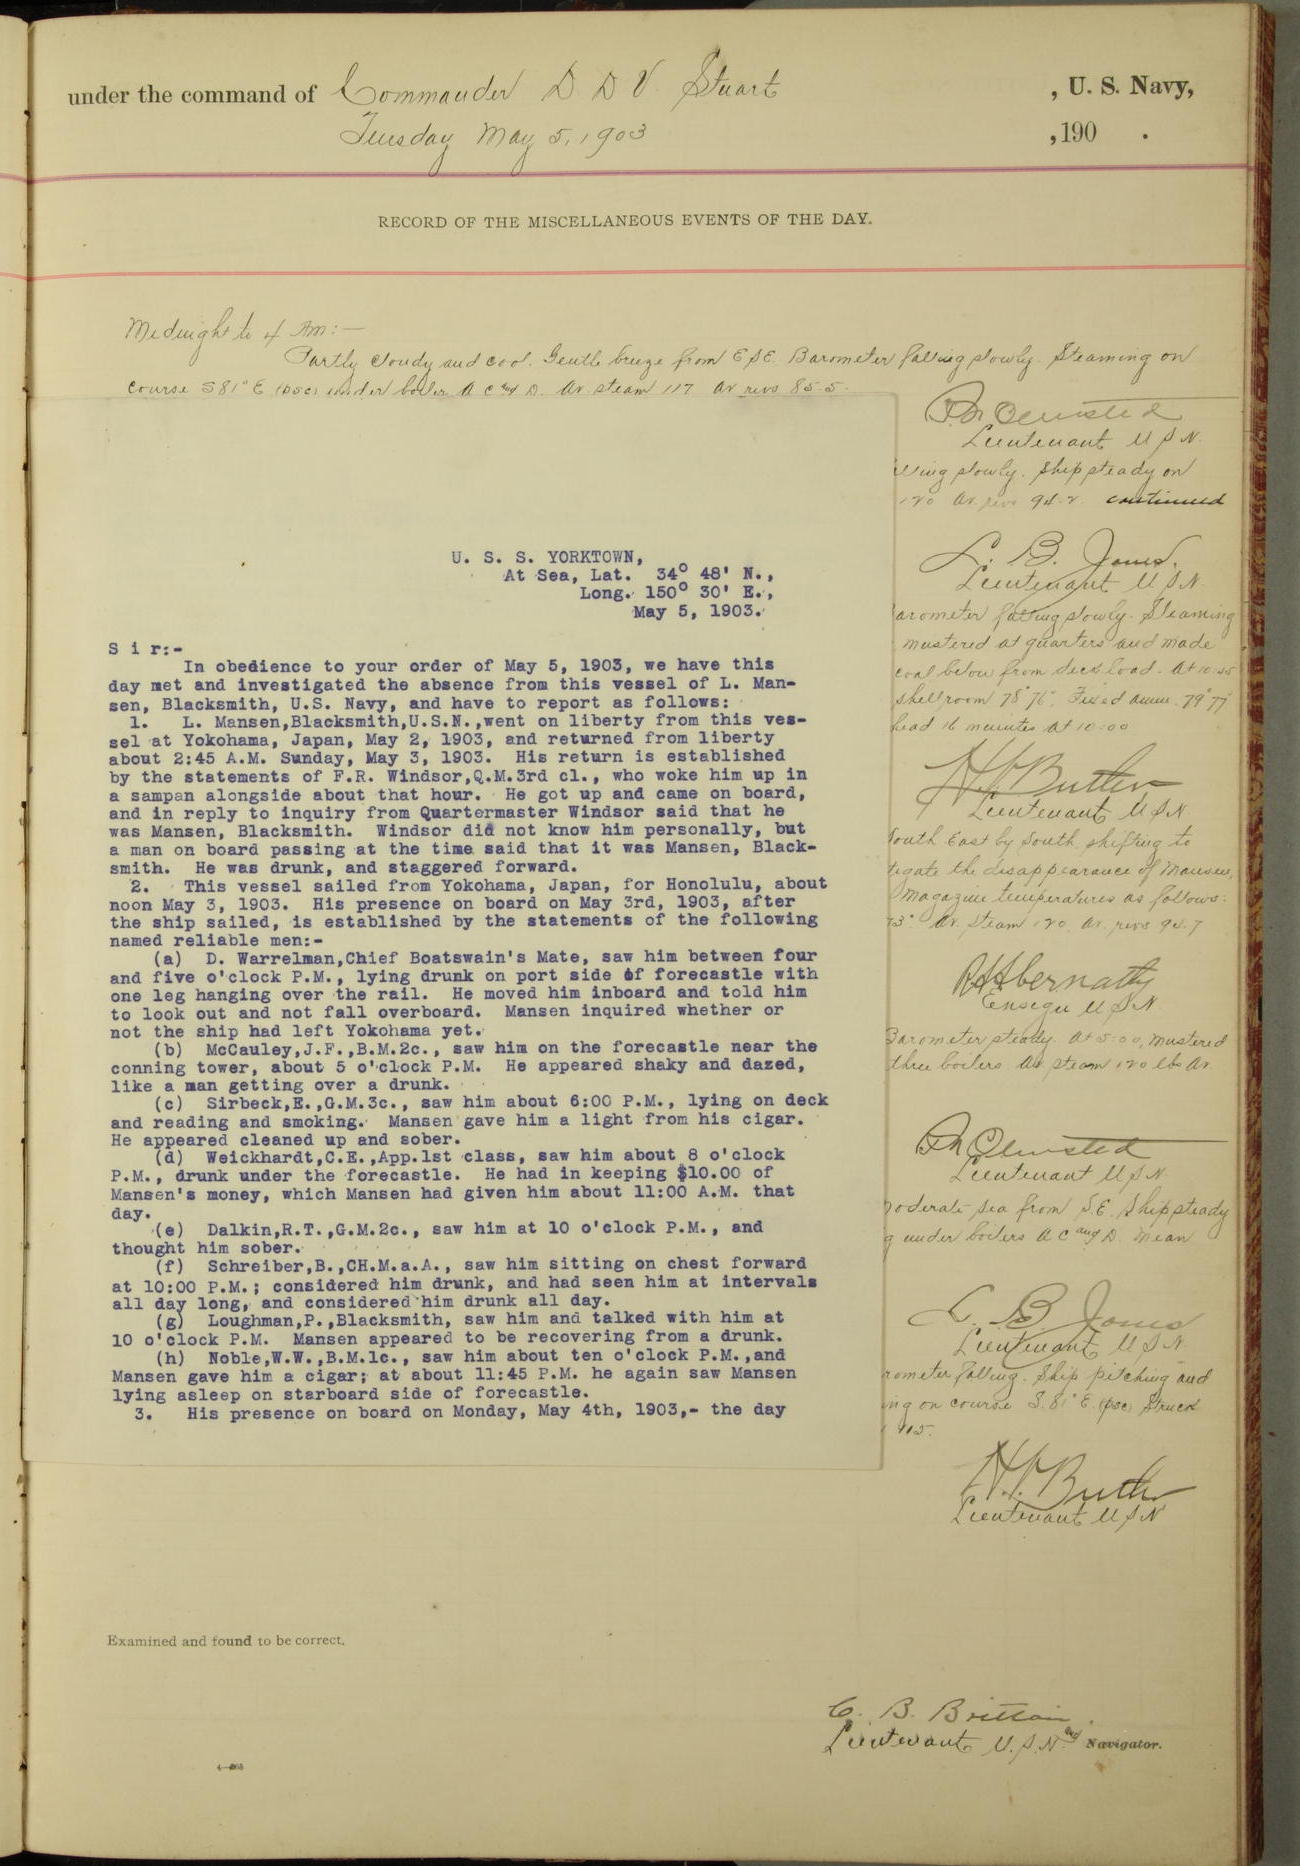 under the command of Commander D D V. Stuart , U. S. Navy,
Tuesday May 5, 1903 ,190 .
RECORD OF THE MISCELLANEOUS EVENTS OF THE DAY.
Midnight to 4 Am:—
Partly cloudy and cool. Gentle breeze from E S E. Barometer falling slowly. Steaming on
course S 81° E (psc) under boiler A C and D. Av. steam 117 Av revs 85.5.
Olmsted
Lieutenant U S N.
slowly. Ship steady on
120 Av. revs 94.2. continued
L. B. Jones.
Lieutenant U S N
arometer falling slowly. Steaming
mustered at quarters and made
coal below from deck load. At 10.45
shell room 78° 76°. Fixed amm. 79° 77
head 16 minutes at 10:00
Butler
Lieutenant U S N
South East by South shifting to
tigate the disappearance of Mansen,
Magazine temperatures as follows:
73° Av. steam 120. Av. revs 94.7
Abernathy
Ensign U S N.
Barometer steady. At 5:00, mustered
three boilers. Av. steam 120 lbs Av.
Olmsted
Lieutenant U S N.
moderate sea from S.E. Ship steady
g under boilers A C and D. Mean
L. B. Jones
Lieutenant U S N.
rometer falling. Ship pitching and
ing on course S. 81° E. (psc) Struck
115.
Butler
Lieutenant U S N
U. S. S. YORKTOWN,
At Sea, Lat. 34° 48' N.,
Long. 150° 30' E.,
May 5, 1903.
S i r:-
In obedience to your order of May 5, 1903, we have this
day met and investigated the absence from this vessel of L. Man-
sen, Blacksmith, U.S. Navy, and have to report as follows:
1. L. Mansen,Blacksmith,U.S.N.,went on liberty from this ves-
sel at Yokohama, Japan, May 2, 1903, and returned from liberty
about 2:45 A.M. Sunday, May 3, 1903. His return is established
by the statements of F.R. Windsor,Q.M.3rd cl., who woke him up in
a sampan alongside about that hour. He got up and came on board,
and in reply to inquiry from Quartermaster Windsor said that he
was Mansen, Blacksmith. Windsor did not know him personally, but
a man on board passing at the time said that it was Mansen, Black-
smith. He was drunk, and staggered forward.
2. This vessel sailed from Yokohama, Japan, for Honolulu, about
noon May 3, 1903. His presence on board on May 3rd, 1903, after
the ship sailed, is established by the statements of the following
named reliable men:-
(a) D. Warrelman,Chief Boatswain's Mate, saw him between four
and five o'clock P.M., lying drunk on port side of forecastle with
one leg hanging over the rail. He moved him inboard and told him
to look out and not fall overboard. Mansen inquired whether or
not the ship had left Yokohama yet.
(b) McCauley,J.F.,B.M.2c., saw him on the forecastle near the
conning tower, about 5 o'clock P.M. He appeared shaky and dazed,
like a man getting over a drunk.
(c) Sirbeck,E.,G.M.3c., saw him about 6:00 P.M., lying on deck
and reading and smoking. Mansen gave him a light from his cigar.
He appeared cleaned up and sober.
(d) Weickhardt,C.E.,App.1st class, saw him about 8 o'clock
P.M., drunk under the forecastle. He had in keeping $10.00 of
Mansen's money, which Mansen had given him about 11:00 A.M. that
day.
(e) Dalkin,R.T.,G.M.2c., saw him at 10 o'clock P.M., and
thought him sober.
(f) Schreiber,B.,CH.M.a.A., saw him sitting on chest forward
at 10:00 P.M.; considered him drunk, and had seen him at intervals
all day long, and considered him drunk all day.
(g) Loughman,P.,Blacksmith, saw him and talked with him at
10 o'clock P.M. Mansen appeared to be recovering from a drunk.
(h) Noble,W.W.,B.M.1c., saw him about ten o'clock P.M.,and
Mansen gave him a cigar; at about 11:45 P.M. he again saw Mansen
lying asleep on starboard side of forecastle.
3. His presence on board on Monday, May 4th, 1903,- the day
Examined and found to be correct.
C. B. Brittain.
Lieutenant U.S.N. and Navigator.